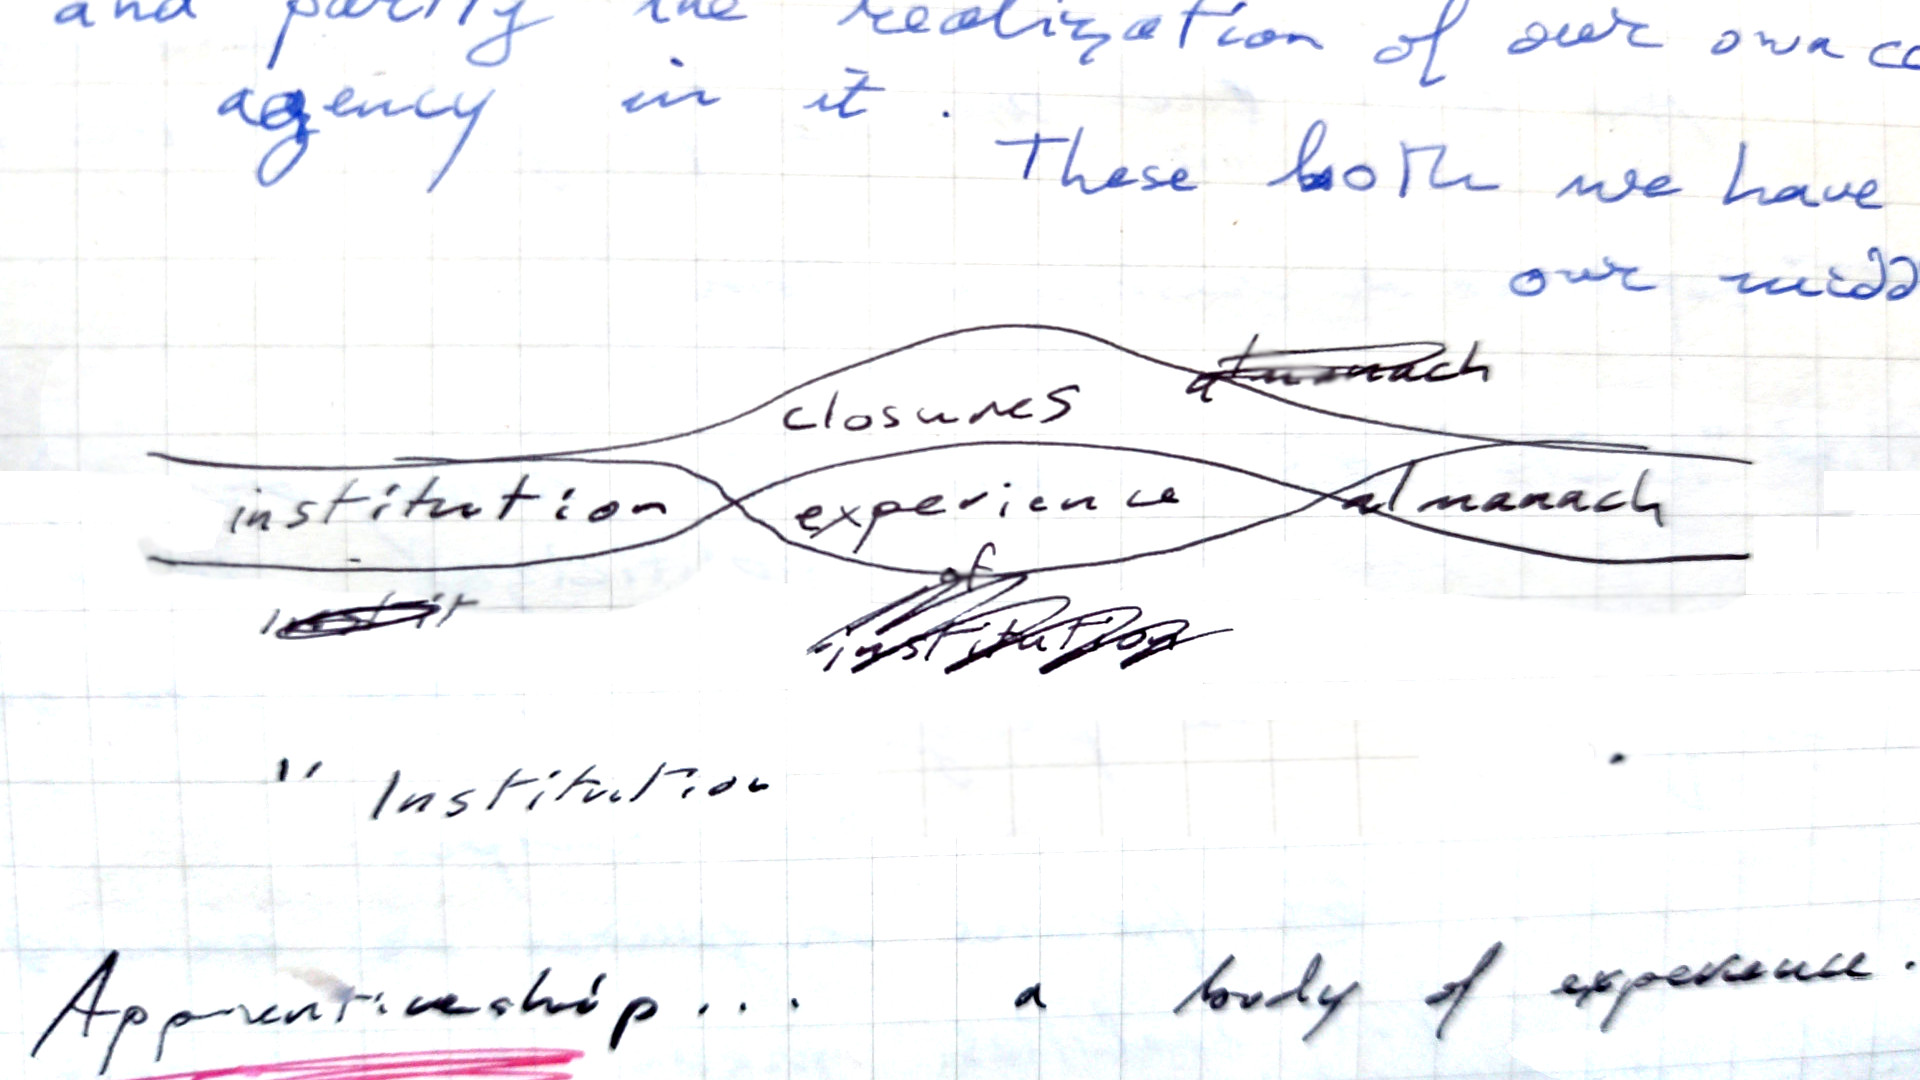 and partly the realization of our own
agency in it.
These both we have
our
almanach
closures
institution experience almanach
instit of
institution
" Institution
Apprenticeship... a body of experience.